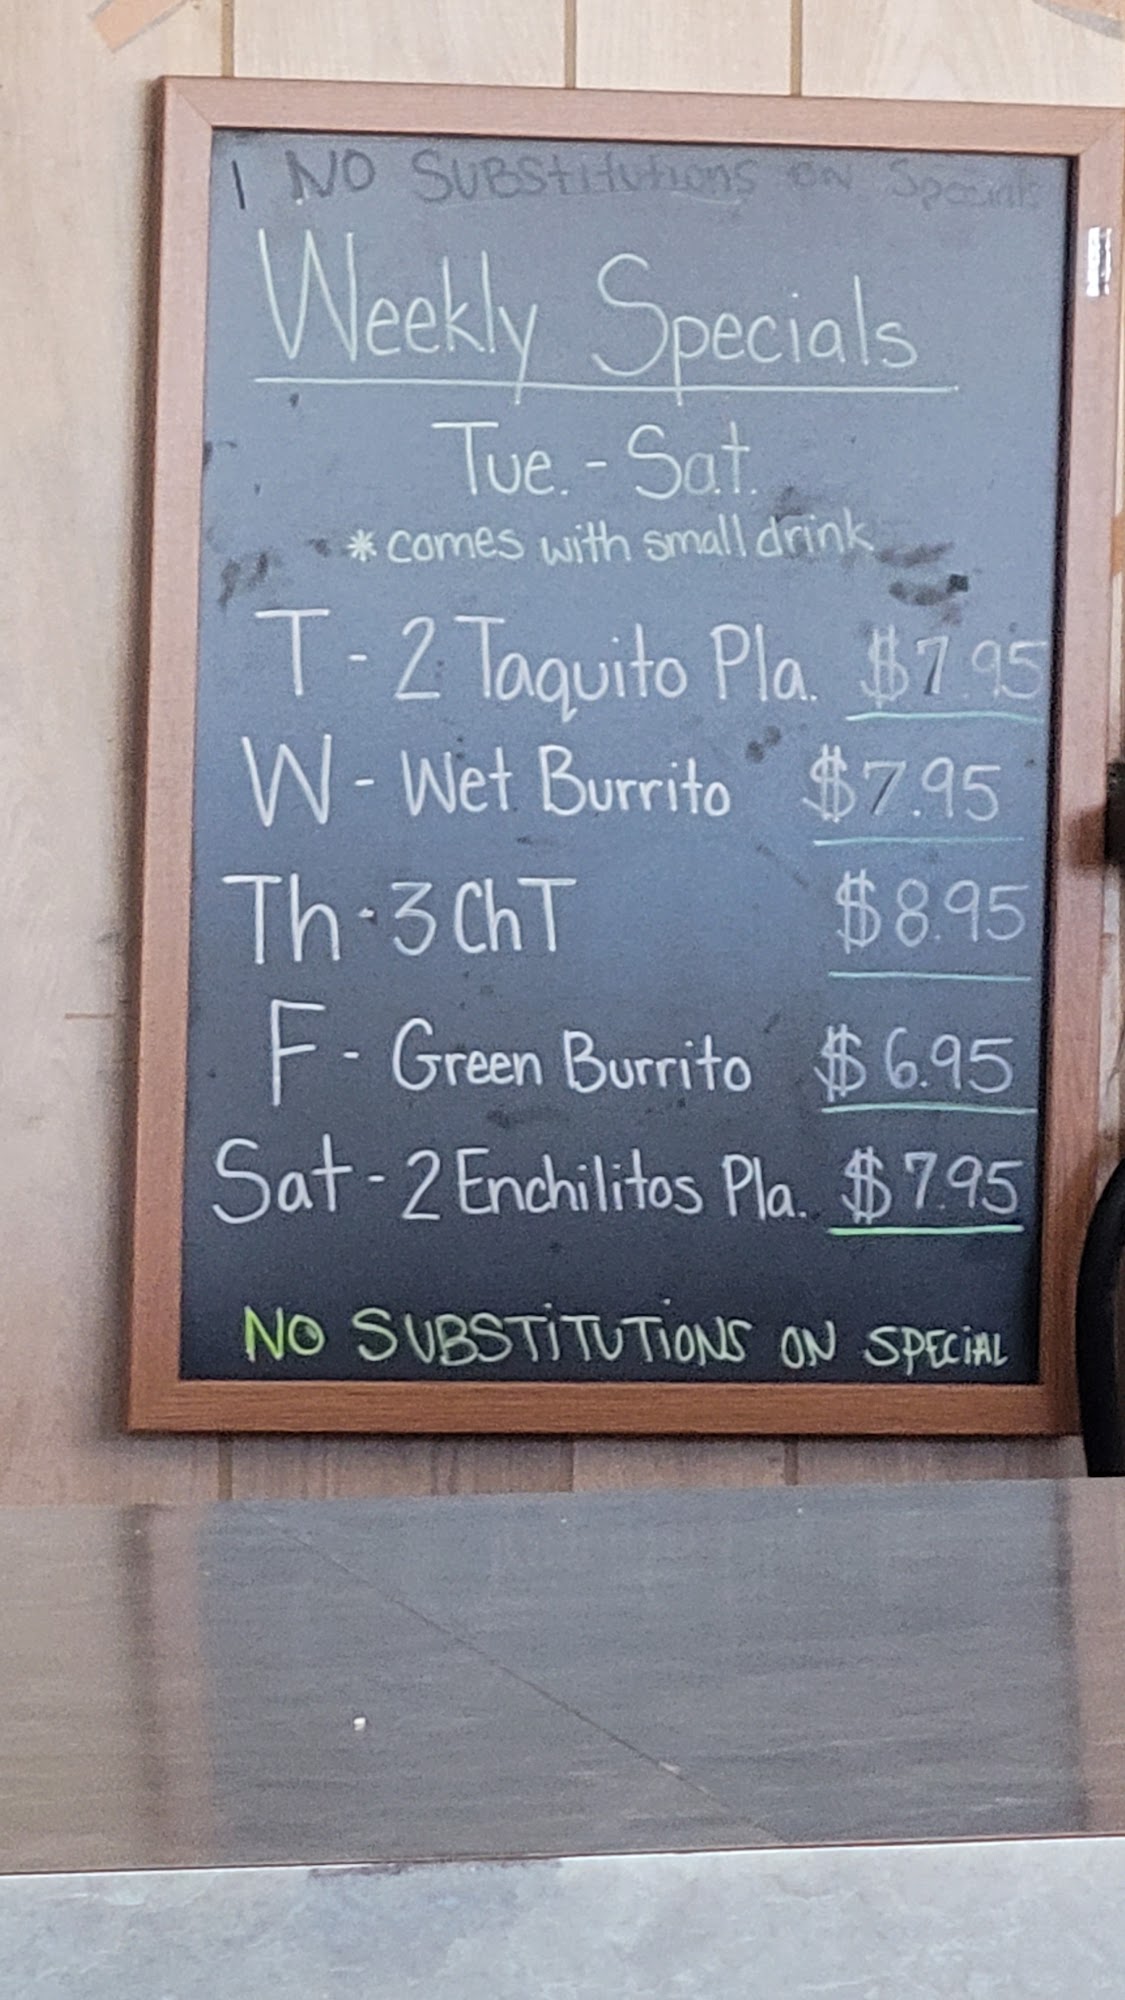 NO SUBStitutions ON Specials
Weekly Specials
Tue. - Sat.
* comes with small drink
T - 2 Taquito Pla. $7.95
W - Wet Burrito $7.95
Th - 3 ChT $8.95
F - Green Burrito $6.95
Sat - 2 Enchilitos Pla. $7.95
NO SUBSTiTUTiONS ON SPECiAL